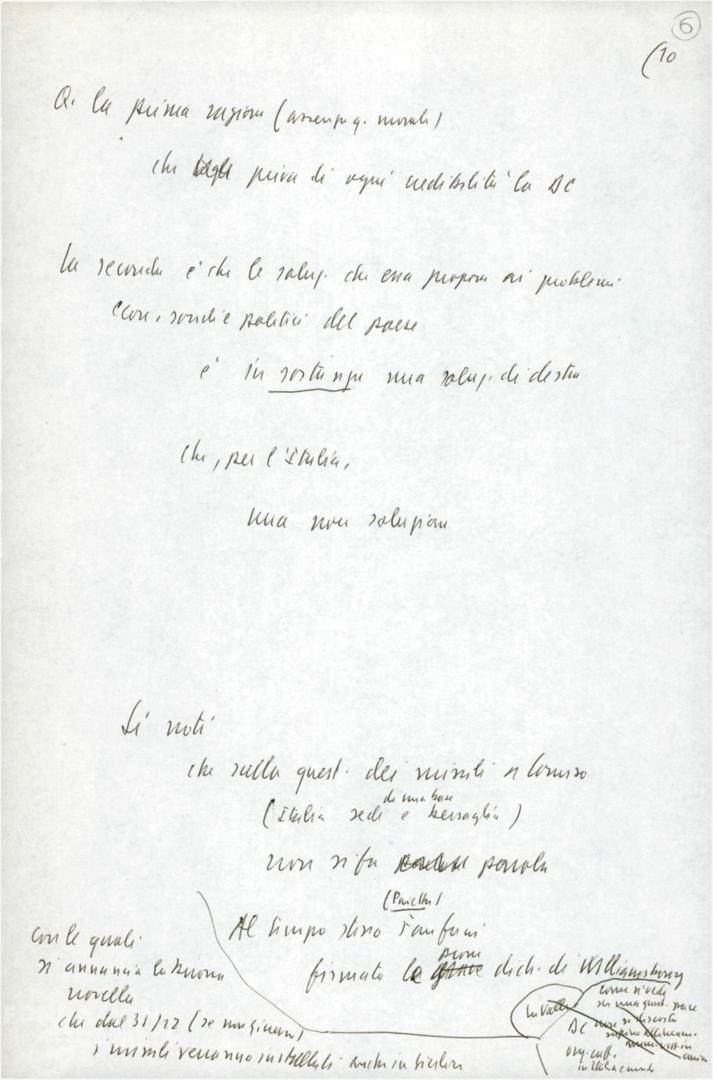 6
(10
Q. la prima ragione (assenza q. morale)
che toglie priva di ogni credibilità la DC
La seconda è che le soluz. che essa propone ai problemi
econ., sociali e politici del paese
è in sostanza una soluz. di destra
che, per l'Italia,
una non soluzione
Si noti
che sulla quest. dei missili a Comiso
di una base
(Italia sede e bersaglio)
non si fa parola
(Pajetta)
Al tempo stesso Fanfani
firmato le dich. di Williamsburg
con le quali
si annuncia la buona
novella
che dal 31/12 (se non ginevra)
i missili verranno installati anche in Sicilia
come si vede
su una quest. pace
DC non si discosta
in Italia e mondo